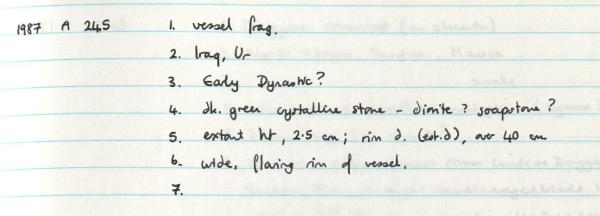 1987 A 245 1. vessel frag.
2. Iraq, Ur
3. Early Dynastic?
4. dk. green crystalline stone - diorite? soapstone?
5. extant ht, 2.5 cm; rim d. (est.d), over 40 cm
6. wide, flaring rim of vessel.
7.